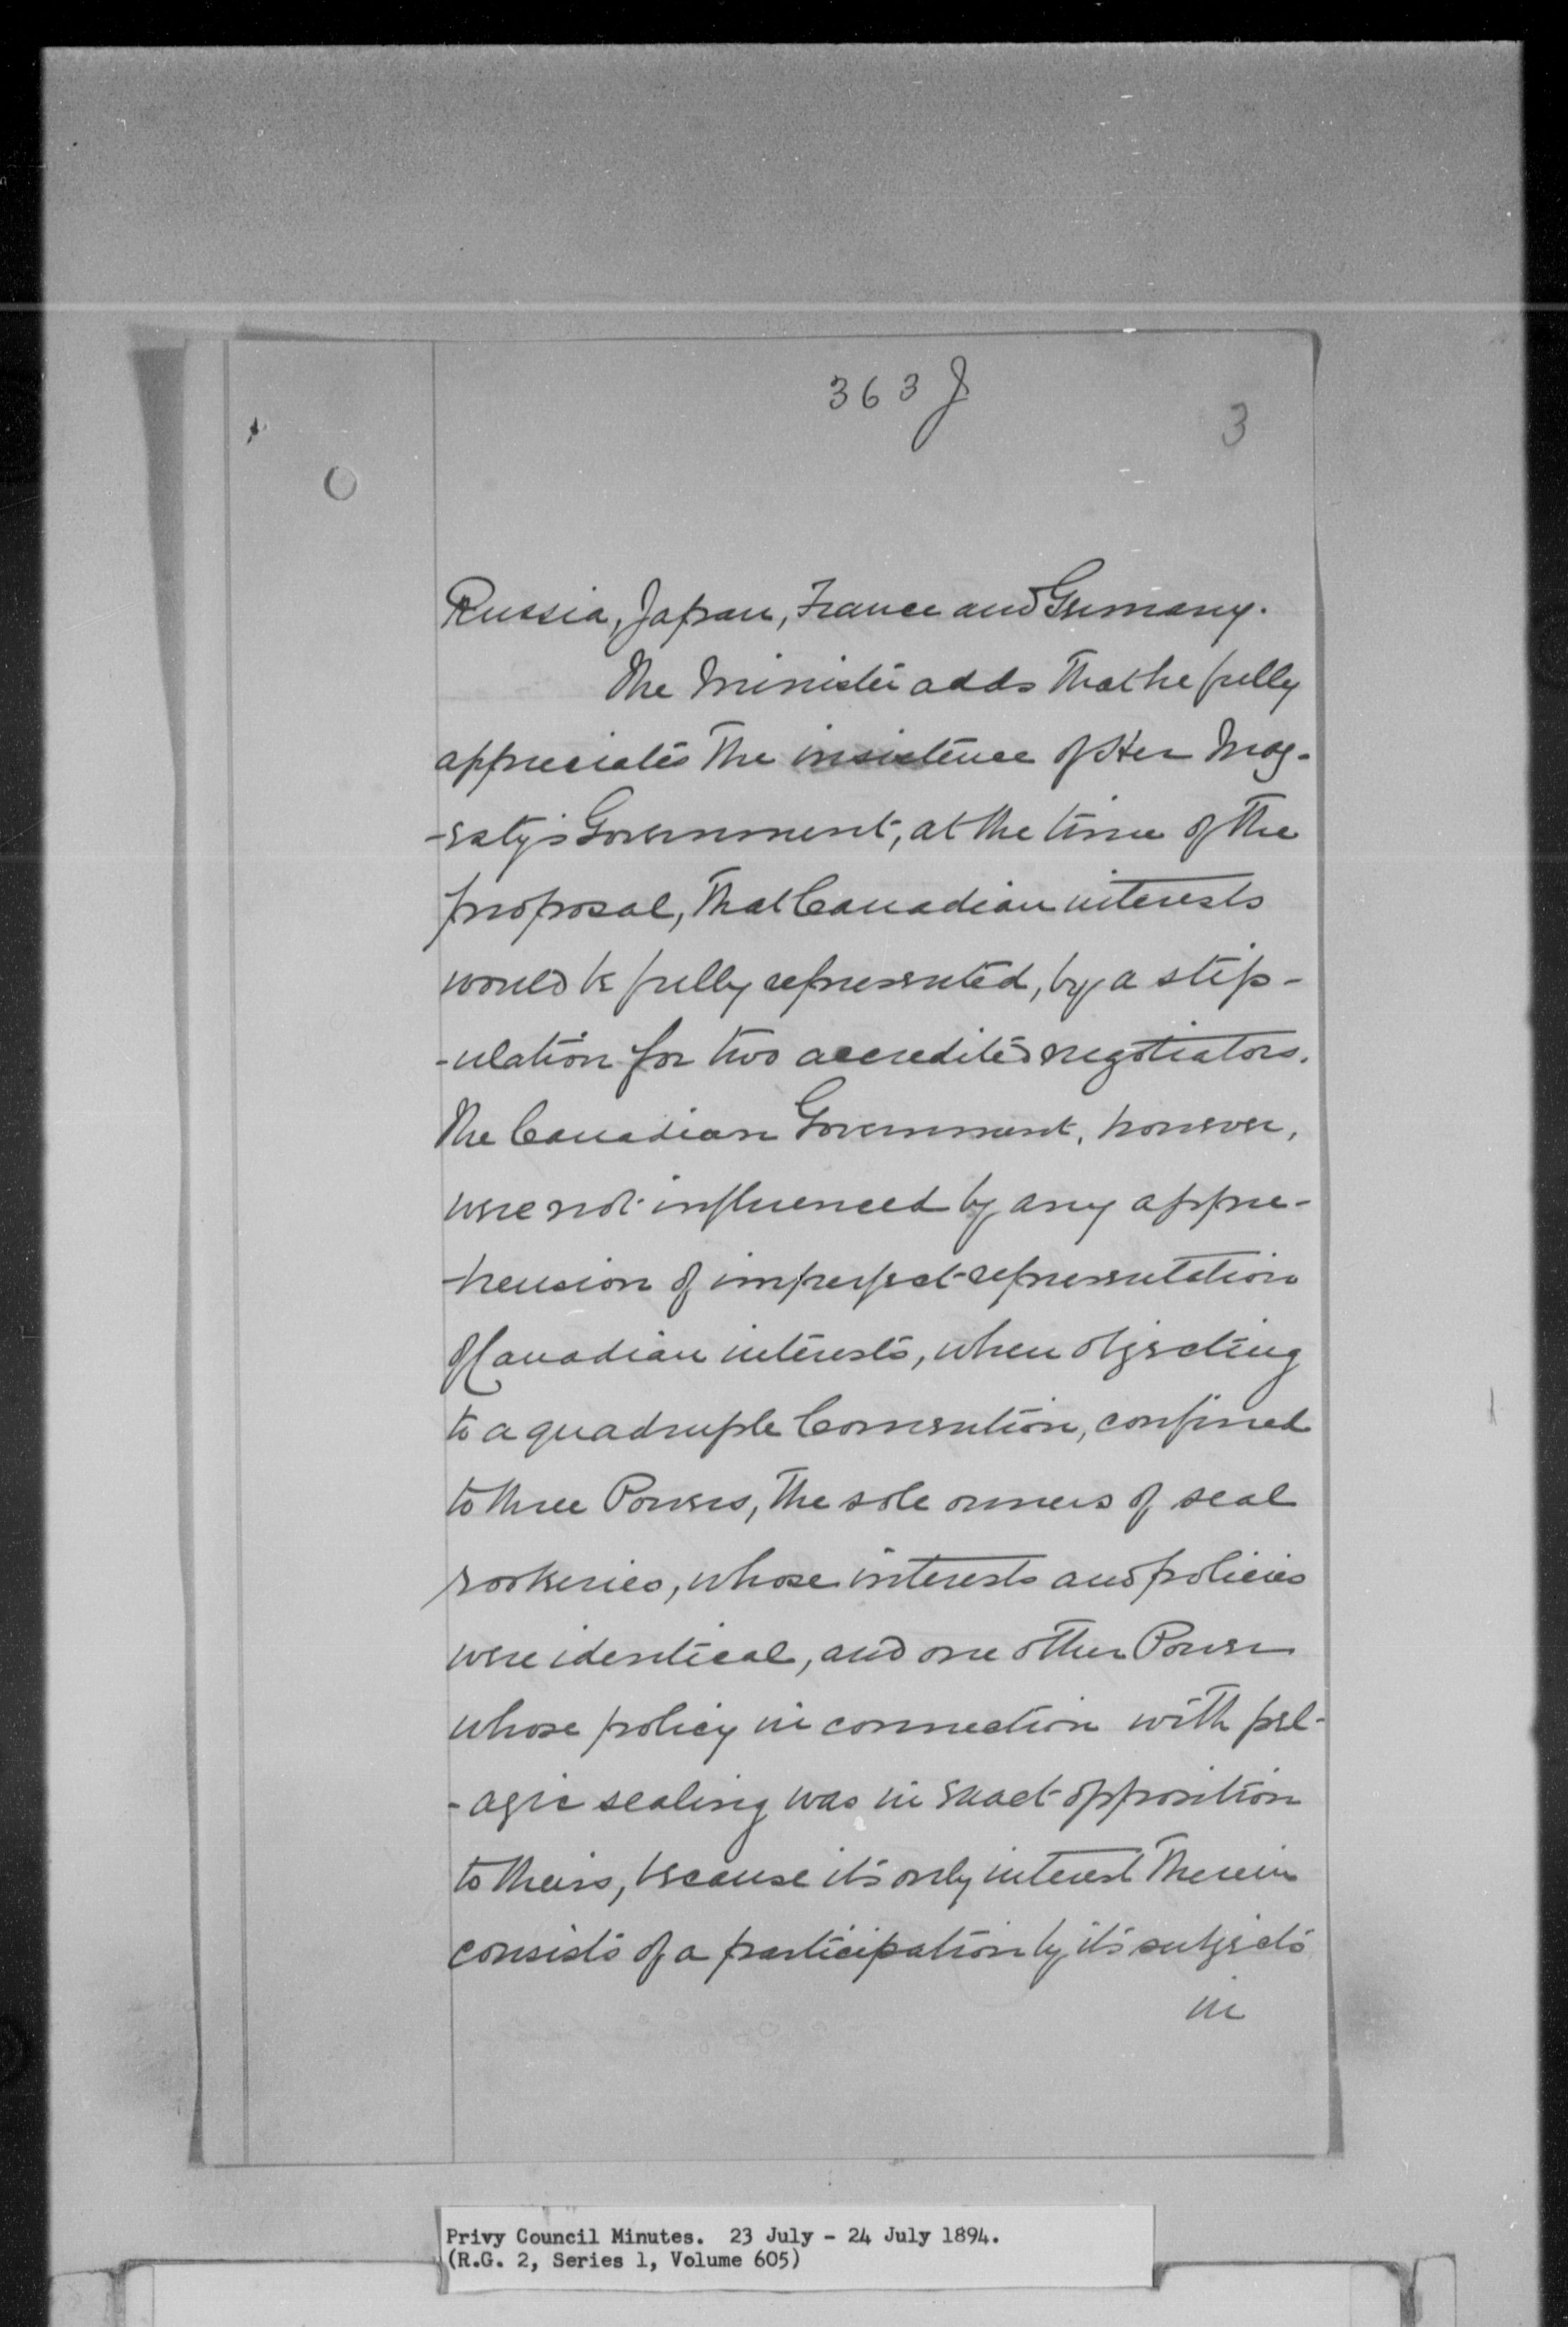 363 J
3
Russia, Japan, France and Germany.
The Minister adds that he fully
appreciates the insistence of Her Maj-
-esty's Government, at the time of the
proposal, that Canadian interests
would be fully represented, by a stip-
-ulation for two accredited negotiators.
The Canadian Government, however,
were not influenced by any appre-
-hension of imperfect representation
of Canadian interests, when objecting
to a quadruple Convention, confined
to three Powers, the sole owners of seal
rookeries, whose interests and policies
were identical, and one other Power
whose policy in connection with pel-
-agic sealing was in exact opposition
to theirs, because its only interest therein
consists of a participation by its subjects
in
Privy Council Minutes. 23 July - 24 July 1894.
(R.G. 2, Series 1, Volume 605)